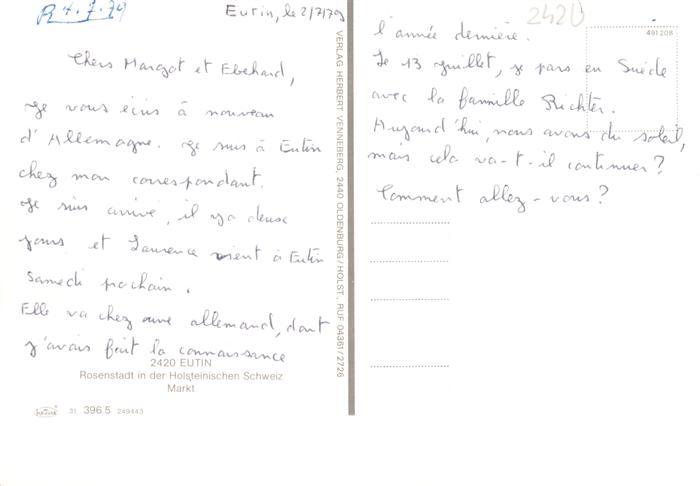 R 4.7.79
Eutin, le 2/7/79
Chers Margot et Ebehard,
Je vous écris à nouveau
d'Allemagne. Je suis à Eutin
chez mon correspondant.
Je suis arrivé, il y a deux
jours et Laurence vient à Eutin
samedi prochain.
Elle va chez une allemand, dont
j'avais fait la connaissance
2420 EUTIN
Rosenstadt in der Holsteinischen Schweiz
Markt
31 396.5 249443
VERLAG HERBERT VENNEBERG, 2440 OLDENBURG/HOLST., RUF 04361/2726
2420
491208
l'année dernière.
Le 13 juillet, je pars en Suède
avec la famille Richter.
Aujourd'hui, nous avons du soleil,
mais cela va-t-il continuer?
Comment allez-vous?